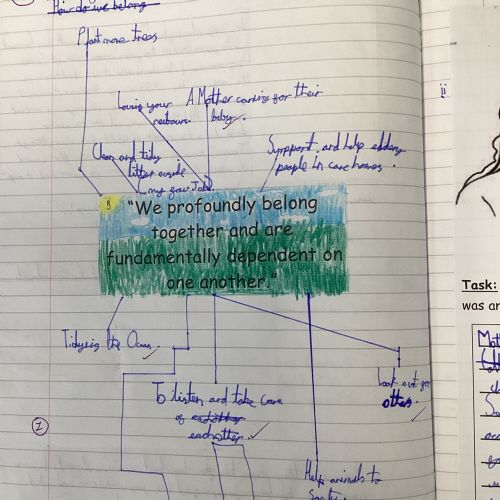 How do we belong
Plant more trees
Loving your
A Mother caring for their
baby.
Clean and tidy
litter outside
Surpport and help eddery
people in care homes.
"We profoundly belong
together and are
fundamentally dependent on
one another."
Tidyeing the Ocean.
To listen and take care
of eachother
eachother.
Look out for
others
Help animals to
ii
Task:
was an
1